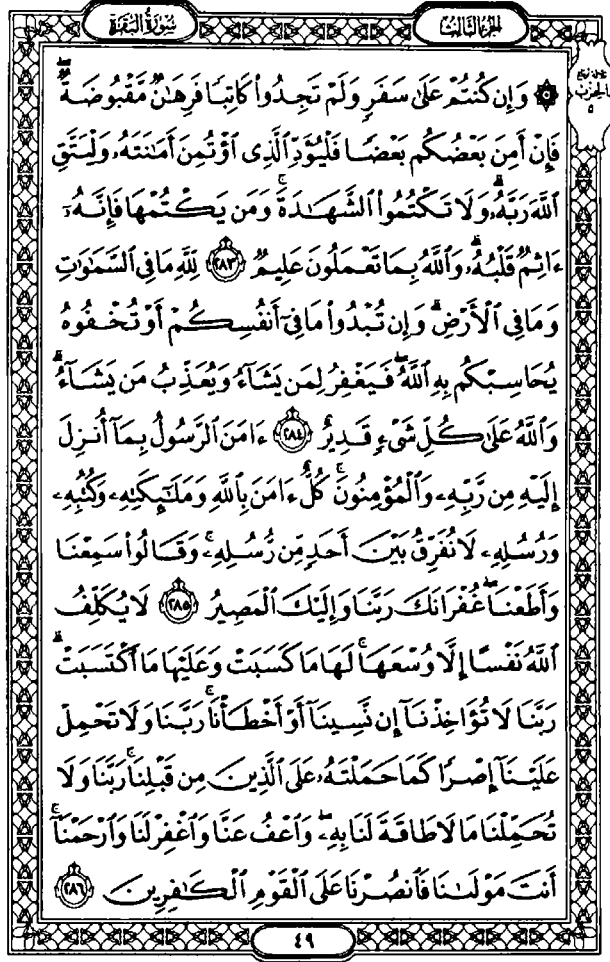 الجزء الثالث
سورة البقرة
الحزب
٥
۞ وَإِن كُنتُمْ عَلَىٰ سَفَرٍ وَلَمْ تَجِدُوا۟ كَاتِبًا فَرِهَـٰنٌ مَّقْبُوضَةٌ ۖ
فَإِنْ أَمِنَ بَعْضُكُم بَعْضًا فَلْيُؤَدِّ ٱلَّذِى ٱؤْتُمِنَ أَمَـٰنَتَهُۥ وَلْيَتَّقِ
ٱللَّهَ رَبَّهُۥ ۗ وَلَا تَكْتُمُوا۟ ٱلشَّهَـٰدَةَ ۚ وَمَن يَكْتُمْهَا فَإِنَّهُۥٓ
ءَاثِمٌ قَلْبُهُۥ ۗ وَٱللَّهُ بِمَا تَعْمَلُونَ عَلِيمٌ ٢٨٣ لِلَّهِ مَا فِى ٱلسَّمَـٰوَٰتِ
وَمَا فِى ٱلْأَرْضِ ۗ وَإِن تُبْدُوا۟ مَا فِىٓ أَنفُسِكُمْ أَوْ تُخْفُوهُ
يُحَاسِبْكُم بِهِ ٱللَّهُ ۖ فَيَغْفِرُ لِمَن يَشَآءُ وَيُعَذِّبُ مَن يَشَآءُ ۗ
وَٱللَّهُ عَلَىٰ كُلِّ شَىْءٍ قَدِيرٌ ٢٨٤ ءَامَنَ ٱلرَّسُولُ بِمَآ أُنزِلَ
إِلَيْهِ مِن رَّبِّهِۦ وَٱلْمُؤْمِنُونَ ۚ كُلٌّ ءَامَنَ بِٱللَّهِ وَمَلَـٰٓئِكَتِهِۦ وَكُتُبِهِۦ
وَرُسُلِهِۦ لَا نُفَرِّقُ بَيْنَ أَحَدٍ مِّن رُّسُلِهِۦ ۚ وَقَالُوا۟ سَمِعْنَا
وَأَطَعْنَا ۖ غُفْرَانَكَ رَبَّنَا وَإِلَيْكَ ٱلْمَصِيرُ ٢٨٥ لَا يُكَلِّفُ
ٱللَّهُ نَفْسًا إِلَّا وُسْعَهَا ۚ لَهَا مَا كَسَبَتْ وَعَلَيْهَا مَا ٱكْتَسَبَتْ ۗ
رَبَّنَا لَا تُؤَاخِذْنَآ إِن نَّسِينَآ أَوْ أَخْطَأْنَا ۚ رَبَّنَا وَلَا تَحْمِلْ
عَلَيْنَآ إِصْرًا كَمَا حَمَلْتَهُۥ عَلَى ٱلَّذِينَ مِن قَبْلِنَا ۚ رَبَّنَا وَلَا
تُحَمِّلْنَا مَا لَا طَاقَةَ لَنَا بِهِۦ ۖ وَٱعْفُ عَنَّا وَٱغْفِرْ لَنَا وَٱرْحَمْنَآ ۚ
أَنتَ مَوْلَىٰنَا فَٱنصُرْنَا عَلَى ٱلْقَوْمِ ٱلْكَـٰفِرِينَ ٢٨٦
٤٩